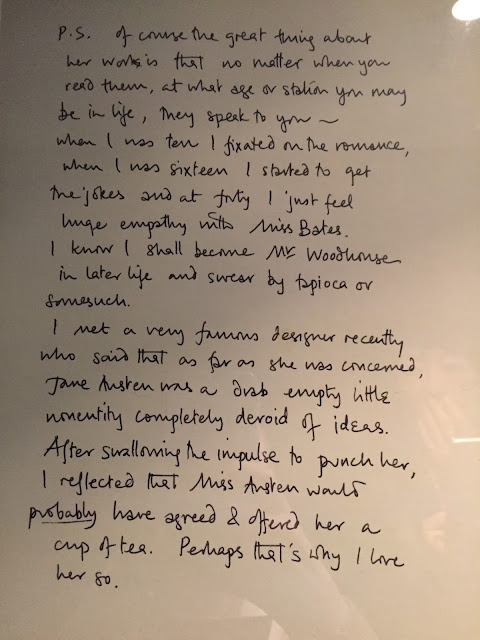 P.S. Of course the great thing about
her works is that no matter when you
read them, at what age or station you may
be in life, they speak to you ~
when I was ten I fixated on the romance,
when I was sixteen I started to get
the jokes and at forty I just feel
huge empathy with Miss Bates.
I know I shall become Mr Woodhouse
in later life and swear by tapioca or
somesuch.
I met a very famous designer recently
who said that as far as she was concerned,
Jane Austen was a drab empty little
nonentity completely devoid of ideas.
After swallowing the impulse to punch her,
I reflected that Miss Austen would
probably have agreed & offered her a
cup of tea. Perhaps that's why I love
her so.